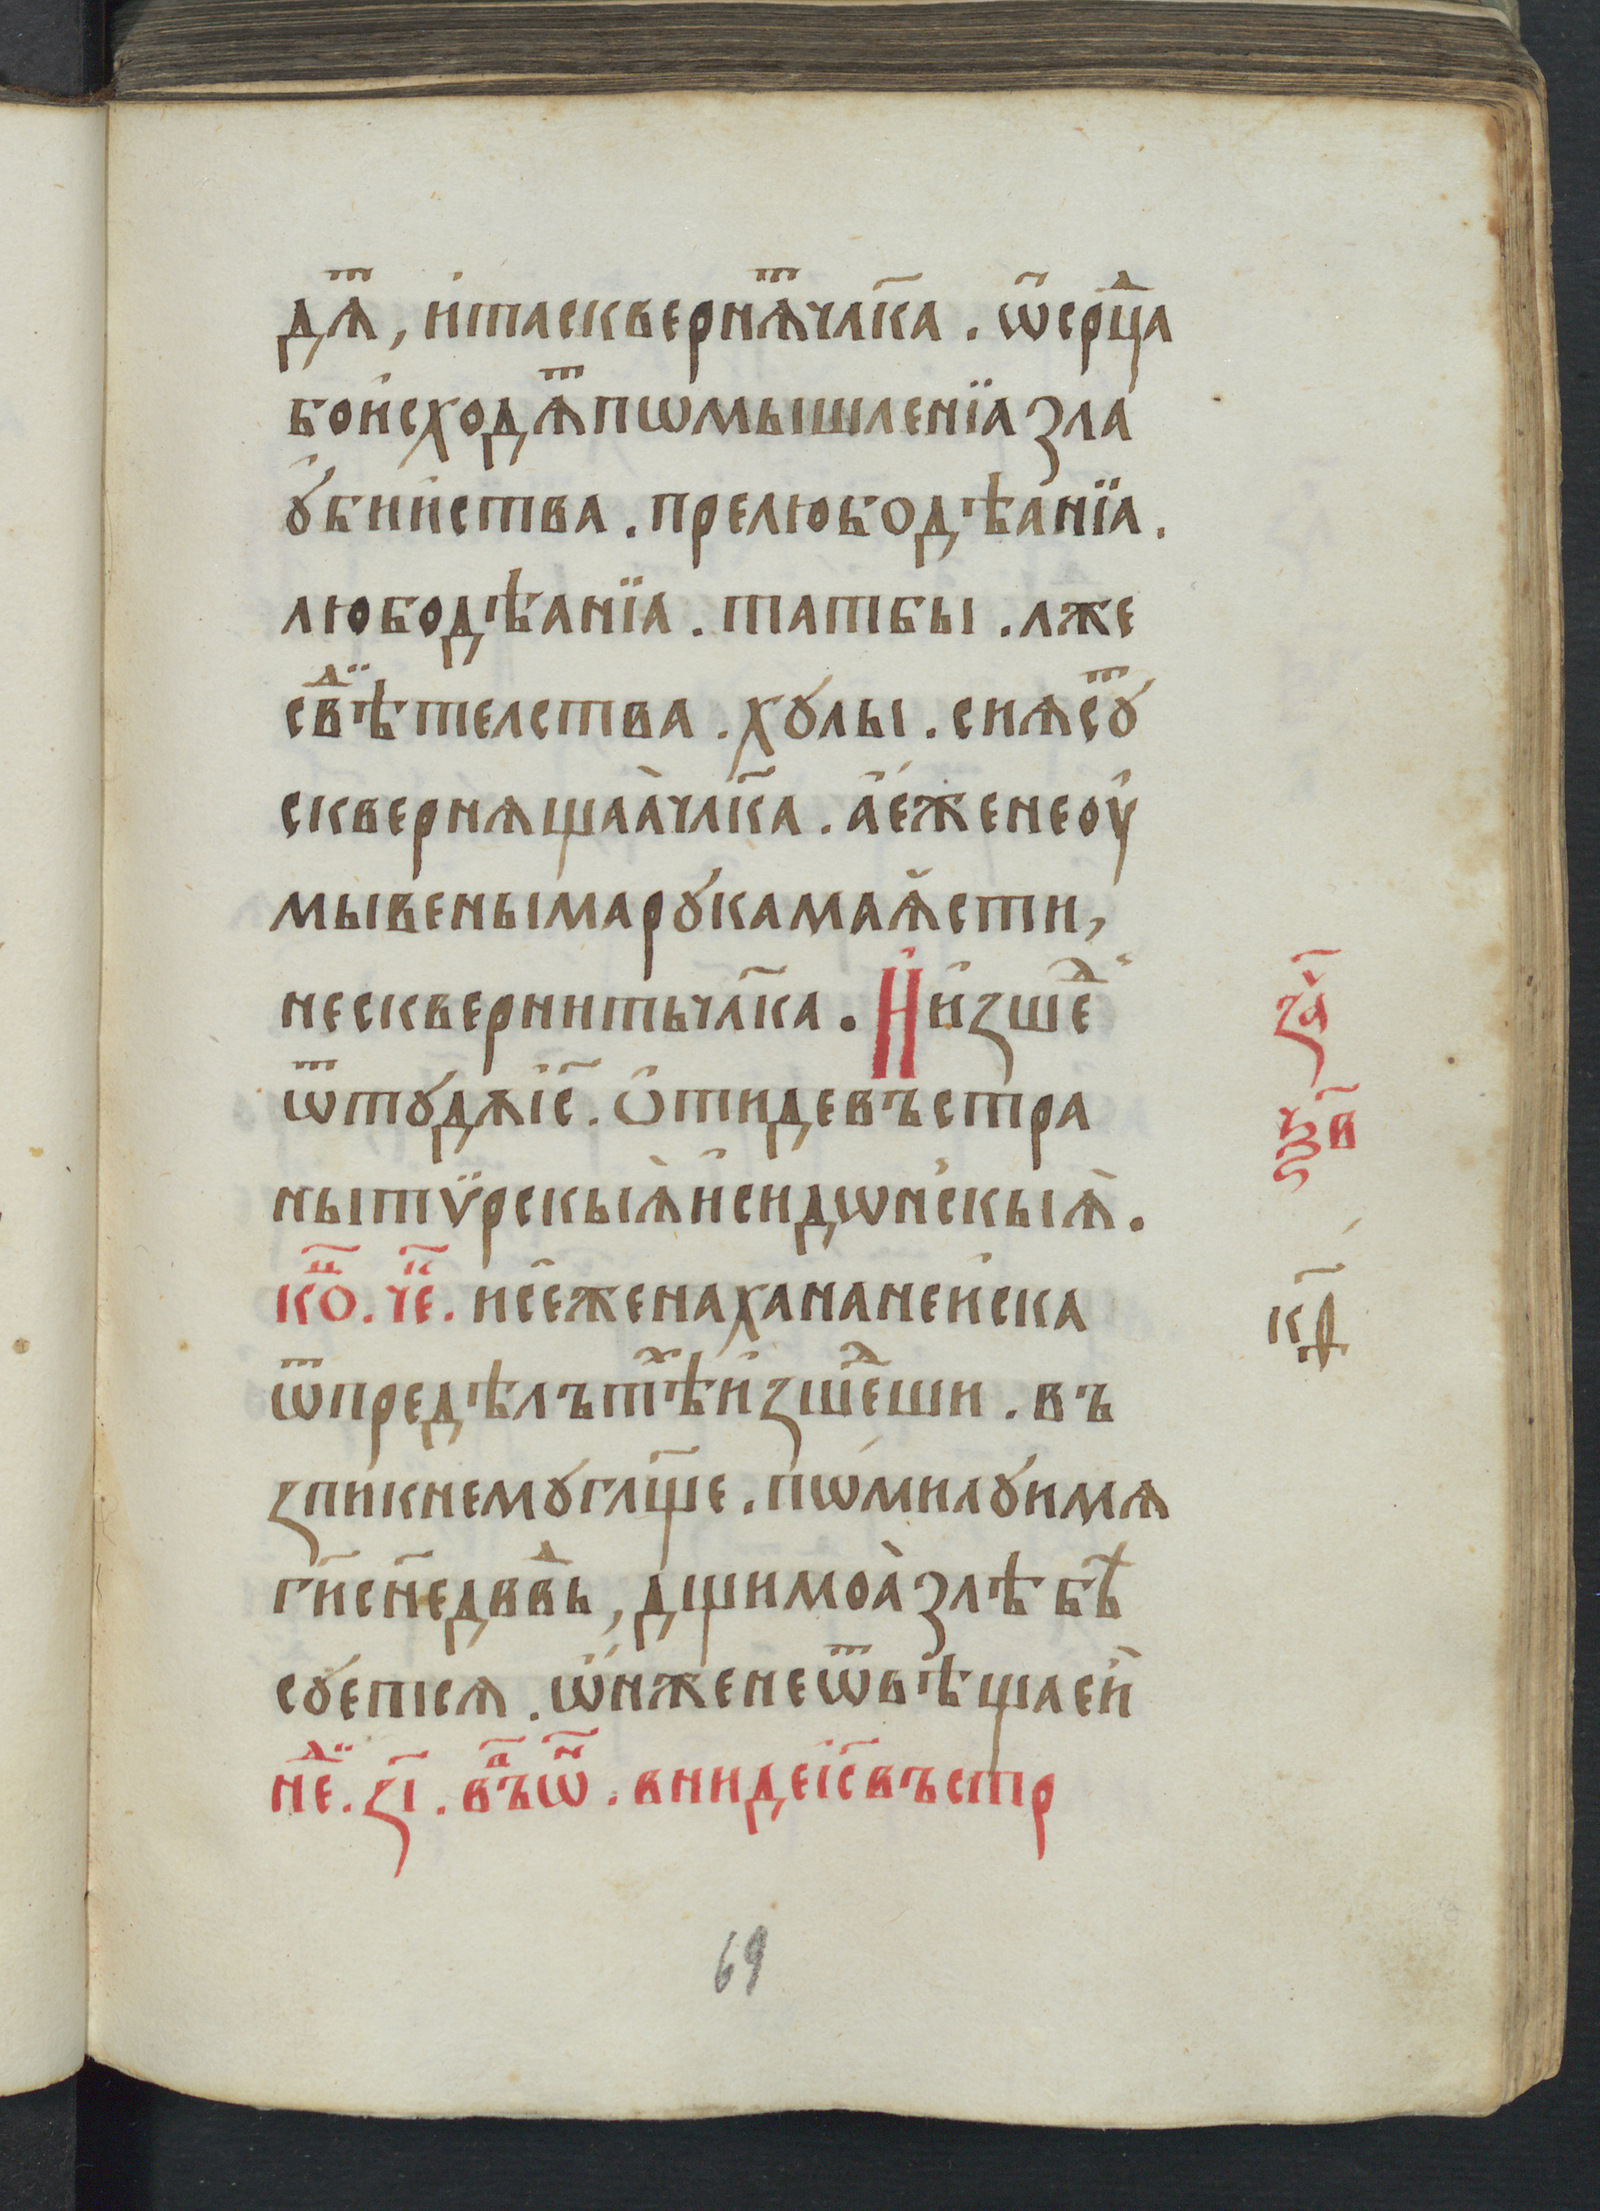 дѧⷮ, и҆тасквернѧⷮчл҃ка. ѿсрⷣца
бои҆сходѧⷮпѡмышленїазла
ꙋ҆бии҆ства. прелюбодѣанїа.
любодѣанїа. татбы. лже
свⷣѣтелства. хꙋлы. сиѧсꙋⷮ
сквернѧщаа҆чл҃ка. а҆е҆женеоу҆
мывенымарꙋкамаꙗ҆сти,
несквернитьчл҃ка. Ии҆зшеⷣ
ѿтꙋдѧі҆с҃. Ѻ҆тидевъстра
зⷱ҇а
ѯ҃в
нытѵ̈рскыѧ҆и҆сидѡн҆скыѧ҆.
коⷰ҇. чеⷦ. и҆се҆женахананеи҆ска
к҃д
ѿпредѣлътѣⷯи҆зшеⷣши. въ
зпик҆немꙋгл҃ще. пѡмилꙋимѧ
ги҃сн҃едв҃вⷣь, дщимоа҆злѣбѣⷭ҇
сꙋетсѧ. ѡ҆нженеѿвѣщаеи҆
неⷣ. з҃і. въⷰ҇ѡⷩ. внидеі҆с҃въстр
69